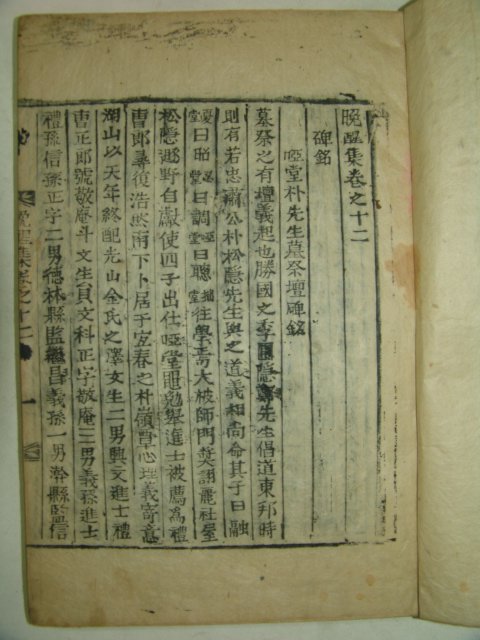 晩醒集卷之十二
碑銘
啞堂朴先生墓祭壇碑銘
墓祭之有壇義起也勝國之季圃隱鄭先生倡道東邦時
則有若忠肅公朴松隱先生與之道義相尚命其子曰融
憂堂曰昭啞堂曰調啞堂曰聰拙堂往學焉大被師門奬詡麗社屋
松隱遯野自獻使四子出仕啞堂黽勉舉進士被薦爲禮
曹郎尋復浩然南下卜居于宜春之朴嶺書心理義寄意
湖山以天年終配光山金氏之澤女生二男興文進士禮
曹正郎號敬庵斗文生員文科正字敬庵三男義孫進士
禮孫信孫正字二男德林縣監繼昌義孫一男瀚縣監信
晩醒集卷之十二
一